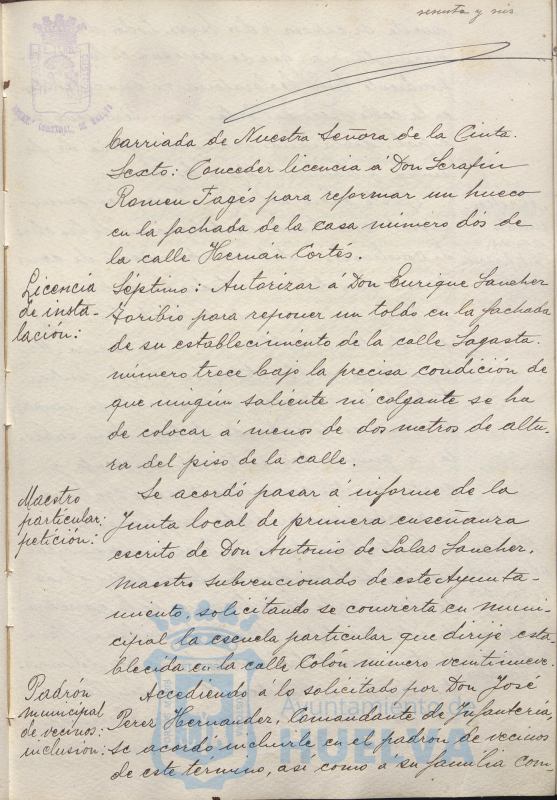 sesenta y seis
Barriada de Nuestra Señora de la Cinta.
Sexto: Conceder licencia á Don Serafín
Romeu Fagés para reformar un hueco
en la fachada de la casa número dós de
la calle Hernán Cortés.
Licencia
de insta-
lación:
Séptimo: Autorizar á Don Enrique Sanchez
Toribio para reponer un toldo en la fachada
de su establecimiento de la calle Sagasta.
número trece bajo la precisa condición de
que ningun saliente ni colgante se ha
de colocar á menos de dos metros de altu-
ra del piso de la calle.
Maestro
particular:
petición:
Se acordó pasar á informe de la
Junta local de primera enseñanza
escrito de Don Antonio de Salas Sanchez,
maestro subvencionado de este Ayunta-
miento, solicitando se convierta en muni-
cipal la escuela particular que dirije esta-
blecida en la calle Colón número veintinueve.
Padrón
municipal
de vecinos:
inclusión:
Accediendo a lo solicitado por Don José
Perez Hernandez, Comandante de Infantería,
se acordó incluirle en el padrón de vecinos
de este término, así como á su familia com
Ayuntamiento de
HUELVA